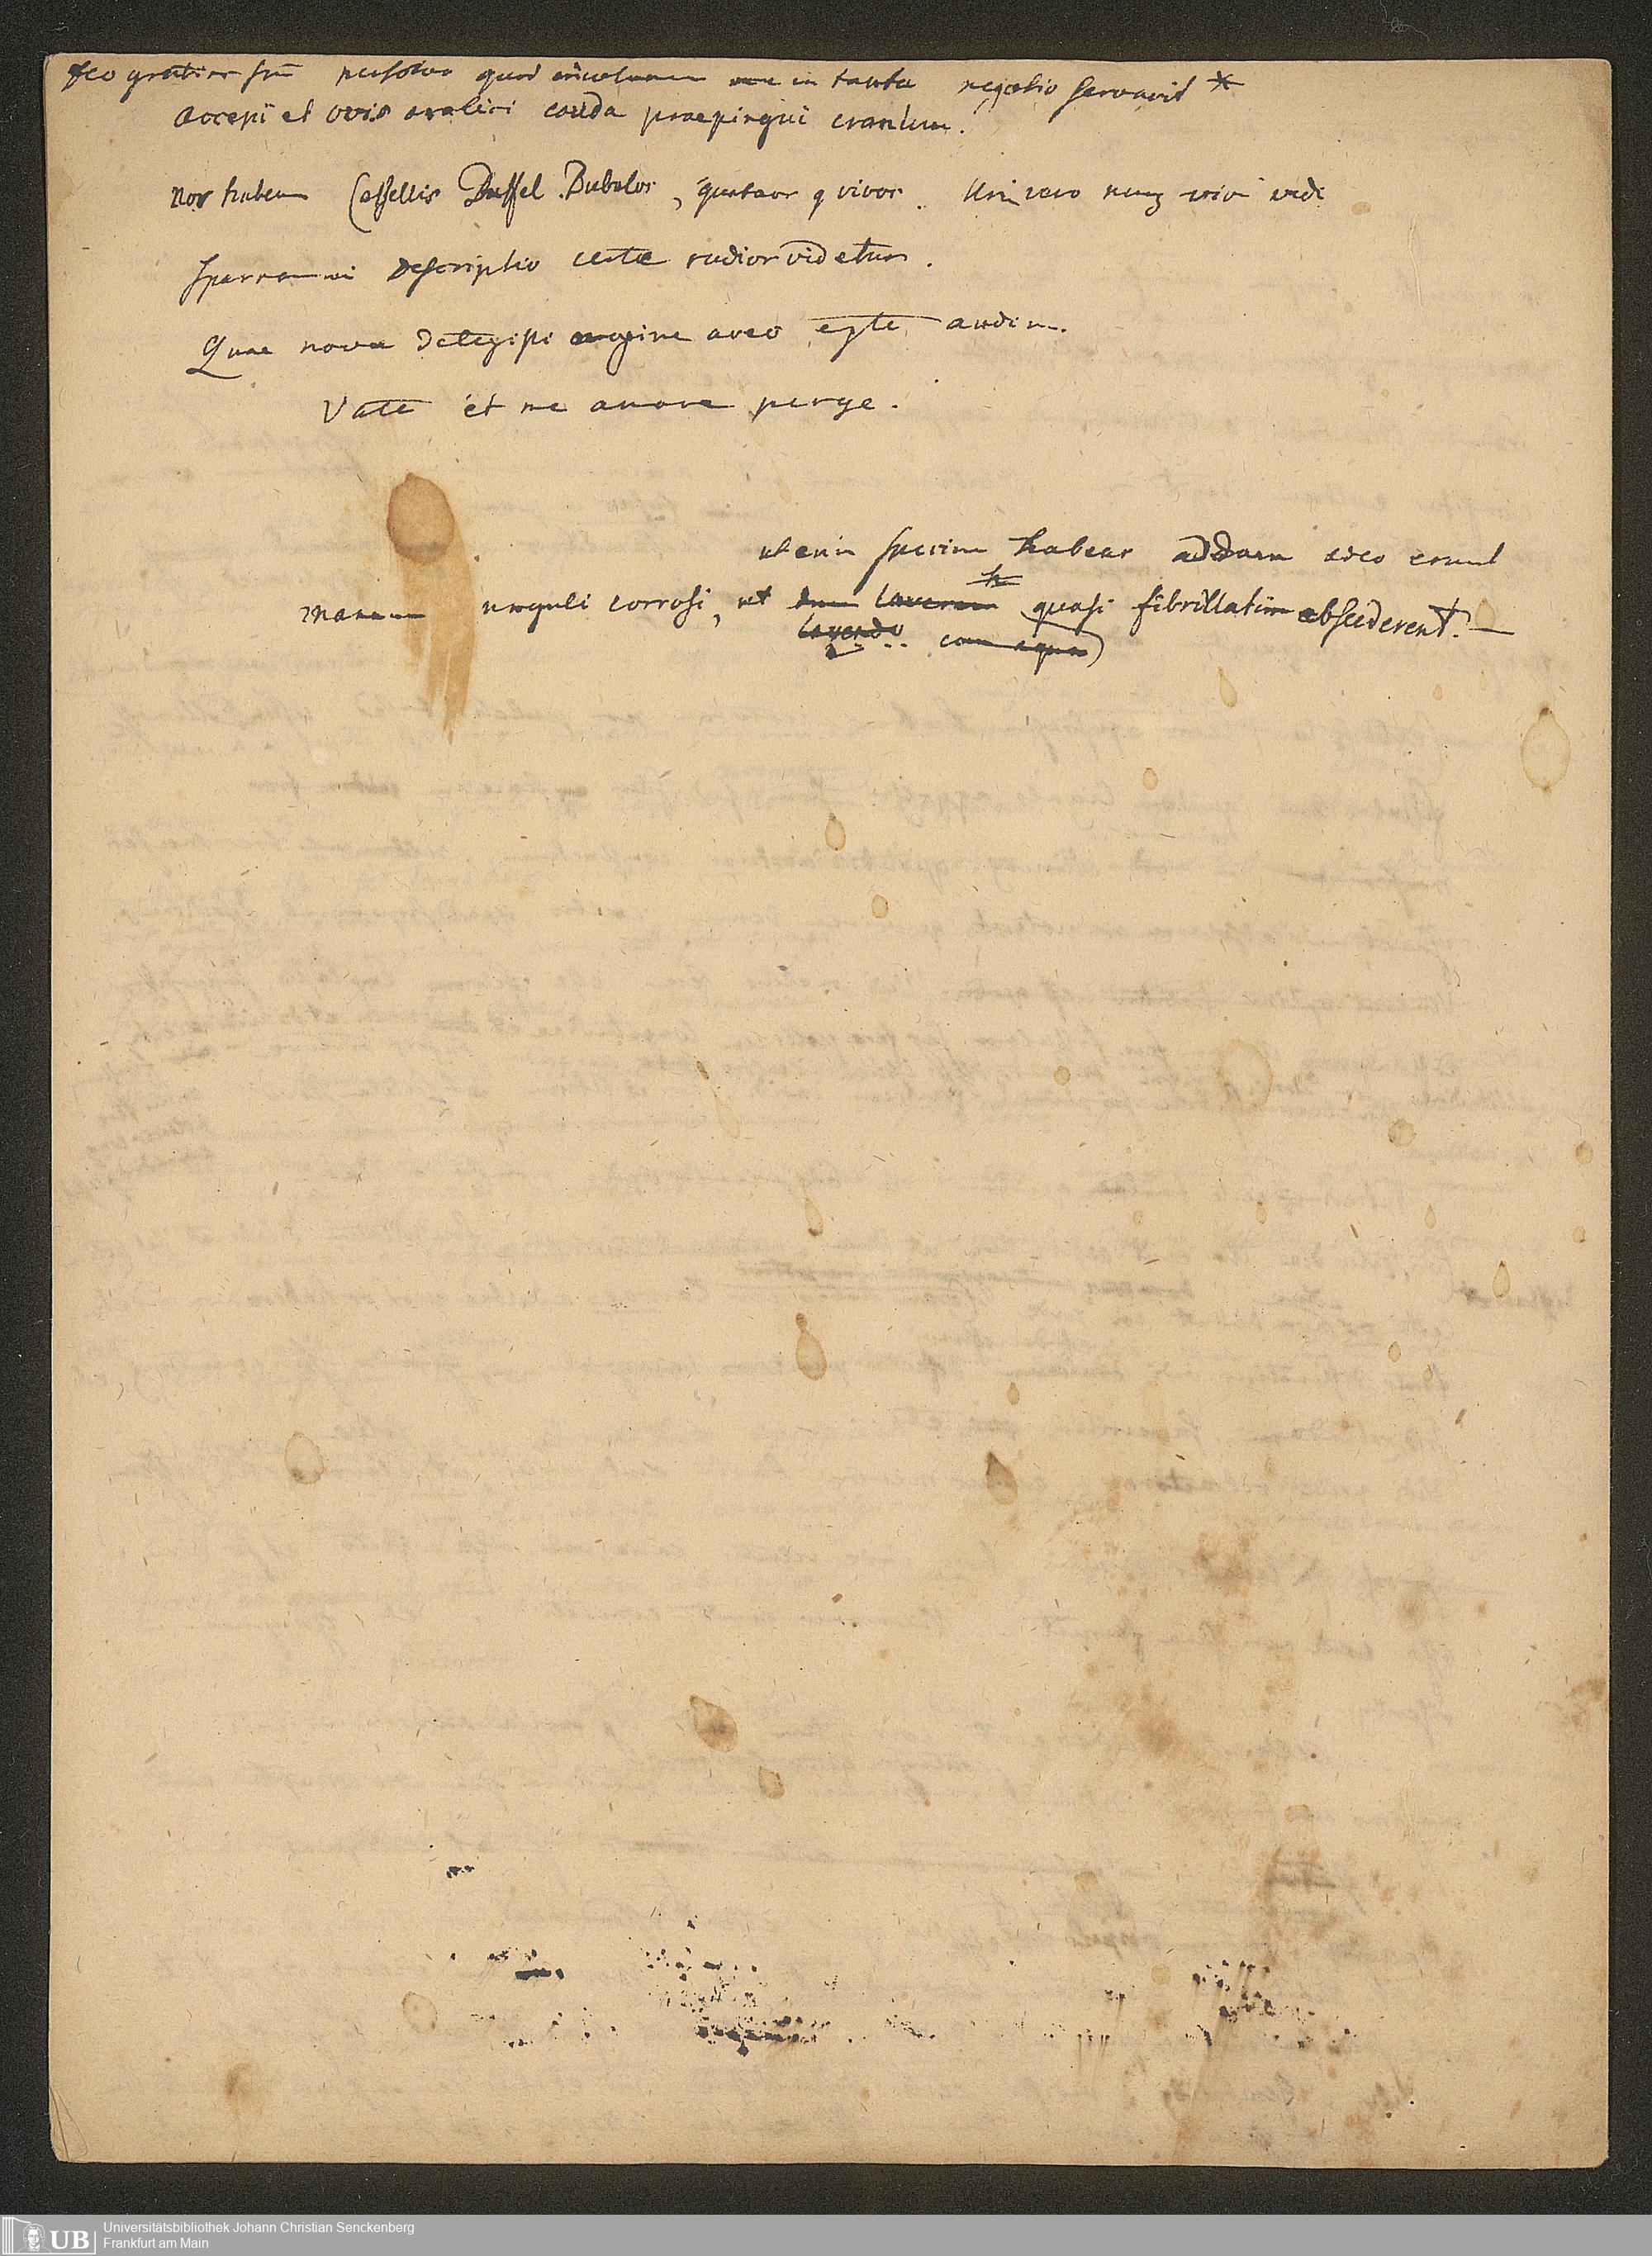 Deo gratias sum persolvo quod incolumem me in tanto negotio servavit *
accepi et ovis arabici cauda praepingui cranium.
nos habem Cassellis Büffel Bubalos, quatuor q vivos. Uri vero nunq vivi vidi
Sparrmanni descriptio certe rudior videtur.
Quae nova detegisti aveo audire.
Vale et me amare perge.
ut enim specimen habeas addam adeo erant
manuum unguli corrosi, ut dum laverem quasi fibrillatim abscederent. —
lavendo cum aqua)
Universitätsbibliothek Johann Christian Senckenberg
UB Frankfurt am Main